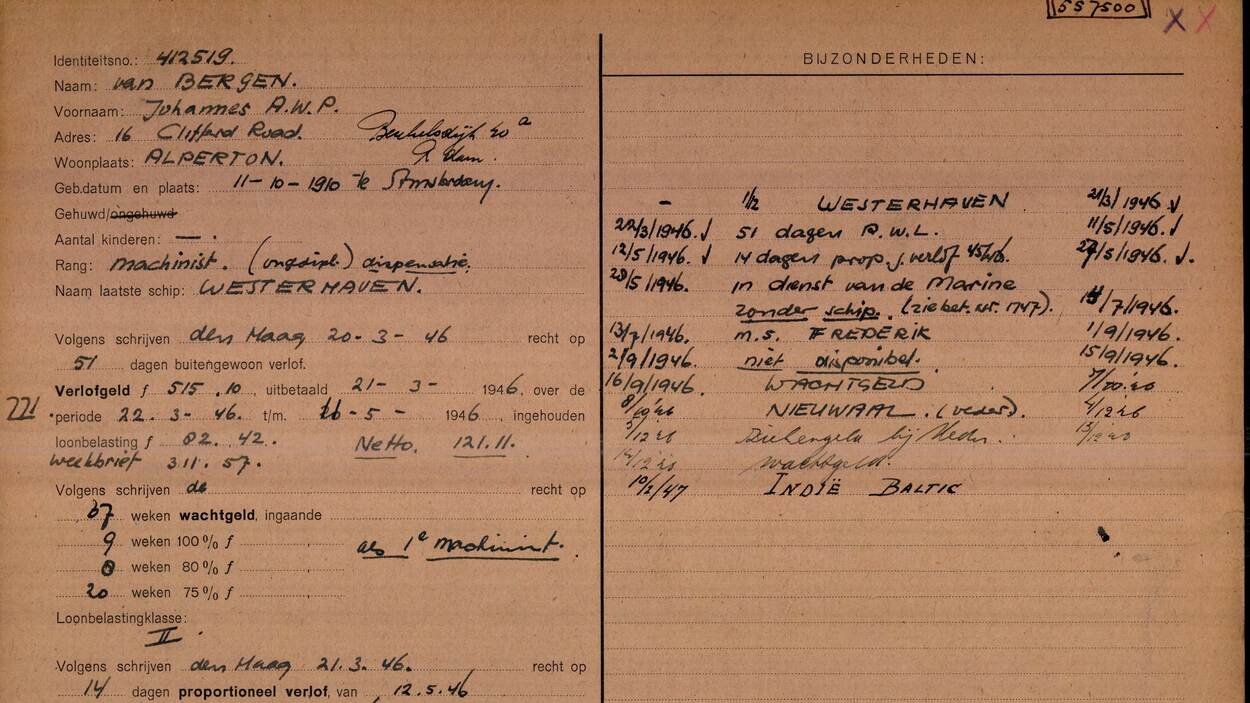 557500 X X
Identiteitsno.: 412519.
Naam: van BERGEN.
Voornaam: Johannes A.W.P.
Adres: 16 Clifford Road. 20 a
Woonplaats: ALPERTON. R'dam.
Geb.datum en plaats: 11-10-1910 te Amsterdam.
Gehuwd/ongehuwd
Aantal kinderen: — .
Rang: machinist. (ongedipl.) dispensatie.
Naam laatste schip: WESTERHAVEN.
Volgens schrijven den Haag 20-3-46 recht op
51 dagen buitengewoon verlof.
Verlofgeld f 515.10, uitbetaald 21-3- 1946, over de
221 periode 22.3-46. t/m. -5- 1946, ingehouden
loonbelasting f 82.42. Netto. 121.11.
weekbrief 311.57.
Volgens schrijven de recht op
37 weken wachtgeld, ingaande
9 weken 100% f
8 weken 80% f als 1e machinist.
20 weken 75% f
Loonbelastingklasse:
II.
Volgens schrijven den Haag 21.3.46. recht op
14 dagen proportioneel verlof, van 12.5.46
BIJZONDERHEDEN:
- 1/2 WESTERHAVEN 21/3/1946.
22/3/1946. 51 dagen P.W.L. 11/5/1946.
12/5/1946. 14 dagen prop. j. verlof 45/46. 27/5/1946.
28/5/1946. in dienst van de Marine
zonder schip. (zie bet. nr. 1747). /7/1946.
13/7/1946. m.s. FREDERIK 1/9/1946.
2/9/1946. niet disponibel. 15/9/1946.
16/9/1946. WACHTGELD 7/10 '46
8/10 '46 NIEUWAAL. (veder). 4/12 46
5/12 46 Ziekengeld bij Veder. 13/12 46
14/12 46 wachtgeld.
10/2/47 INDIË BALTIC